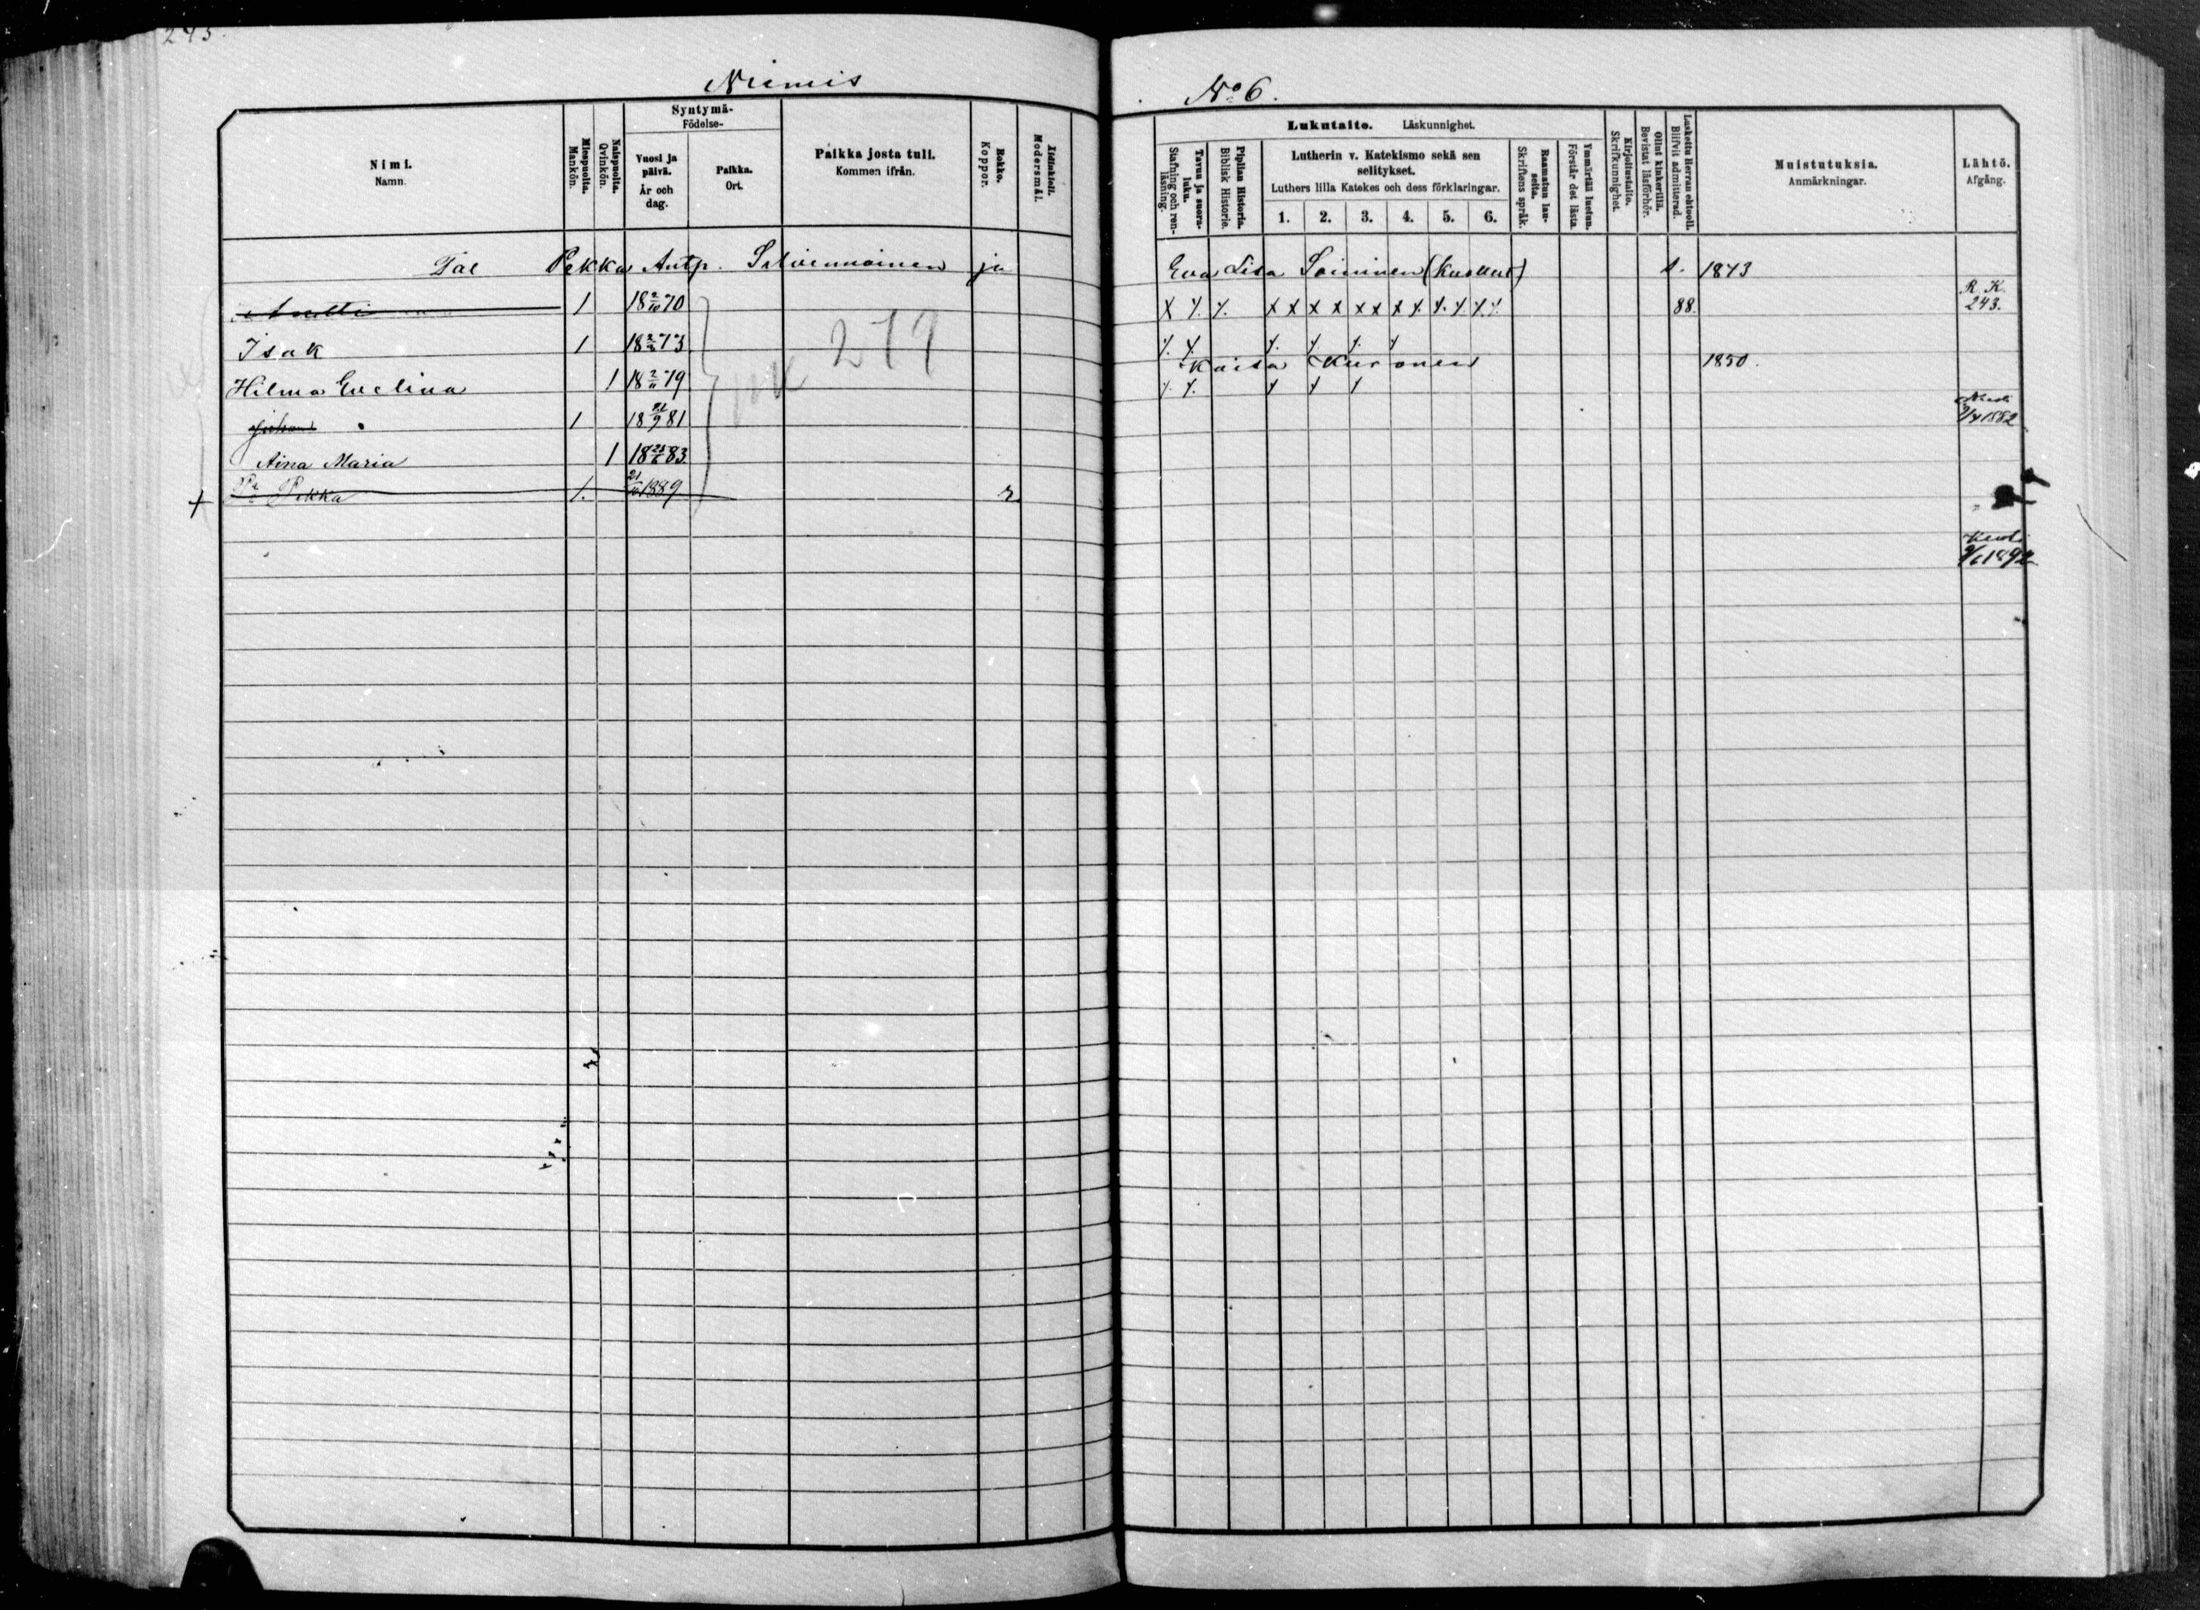 243.
Niemis
No 6.
Nimi. Namn.
Miespuolia. Mankön.
Naispuolia. Qvinkön.
Syntymä- Födelse-
Vuosi ja päivä. År och dag.
Paikka. Ort.
Paikka josta tuli. Kommen ifrån.
Rokko. Koppor.
Äidinkieli. Modersmål.
Lukutaito. Läskunnighet.
Tavuu ja suora-luku. Stafning och ren-läsning.
Piplian Historia. Biblisk Historie.
Lutherin v. Katekismo sekä sen selitykset.
Luthers lilla Katekes och dess förklaringar.
1. 2. 3. 4. 5. 6.
Raamatun lau-seita. Skriftens språk.
Ymmärtää luetun. Förstår det lästa.
Kirjoitustaito. Skrifkunnighet.
Ollut kinkerillä. Bevistat läsförhör.
Laskettu Herran ehtooll. Blifvit admitterad.
Muistutuksia. Anmärkningar.
Lähtö. Afgång.
Tal Pekka Antp. ja Eva Lisa Soininen (kuollut) 1843
Antti 1 18 2/10 70 x x x x x x x x 88. R. K. 243.
Isak 1 18 73
279
Kaisa Kuronen 1850.
Hilma Evelina 1 18 2/11 79
Juhana 1 18 /9 81 1882
Aina Maria 1 18 83
Pekka 1. 21/10 1889. r
Kuoli 1892